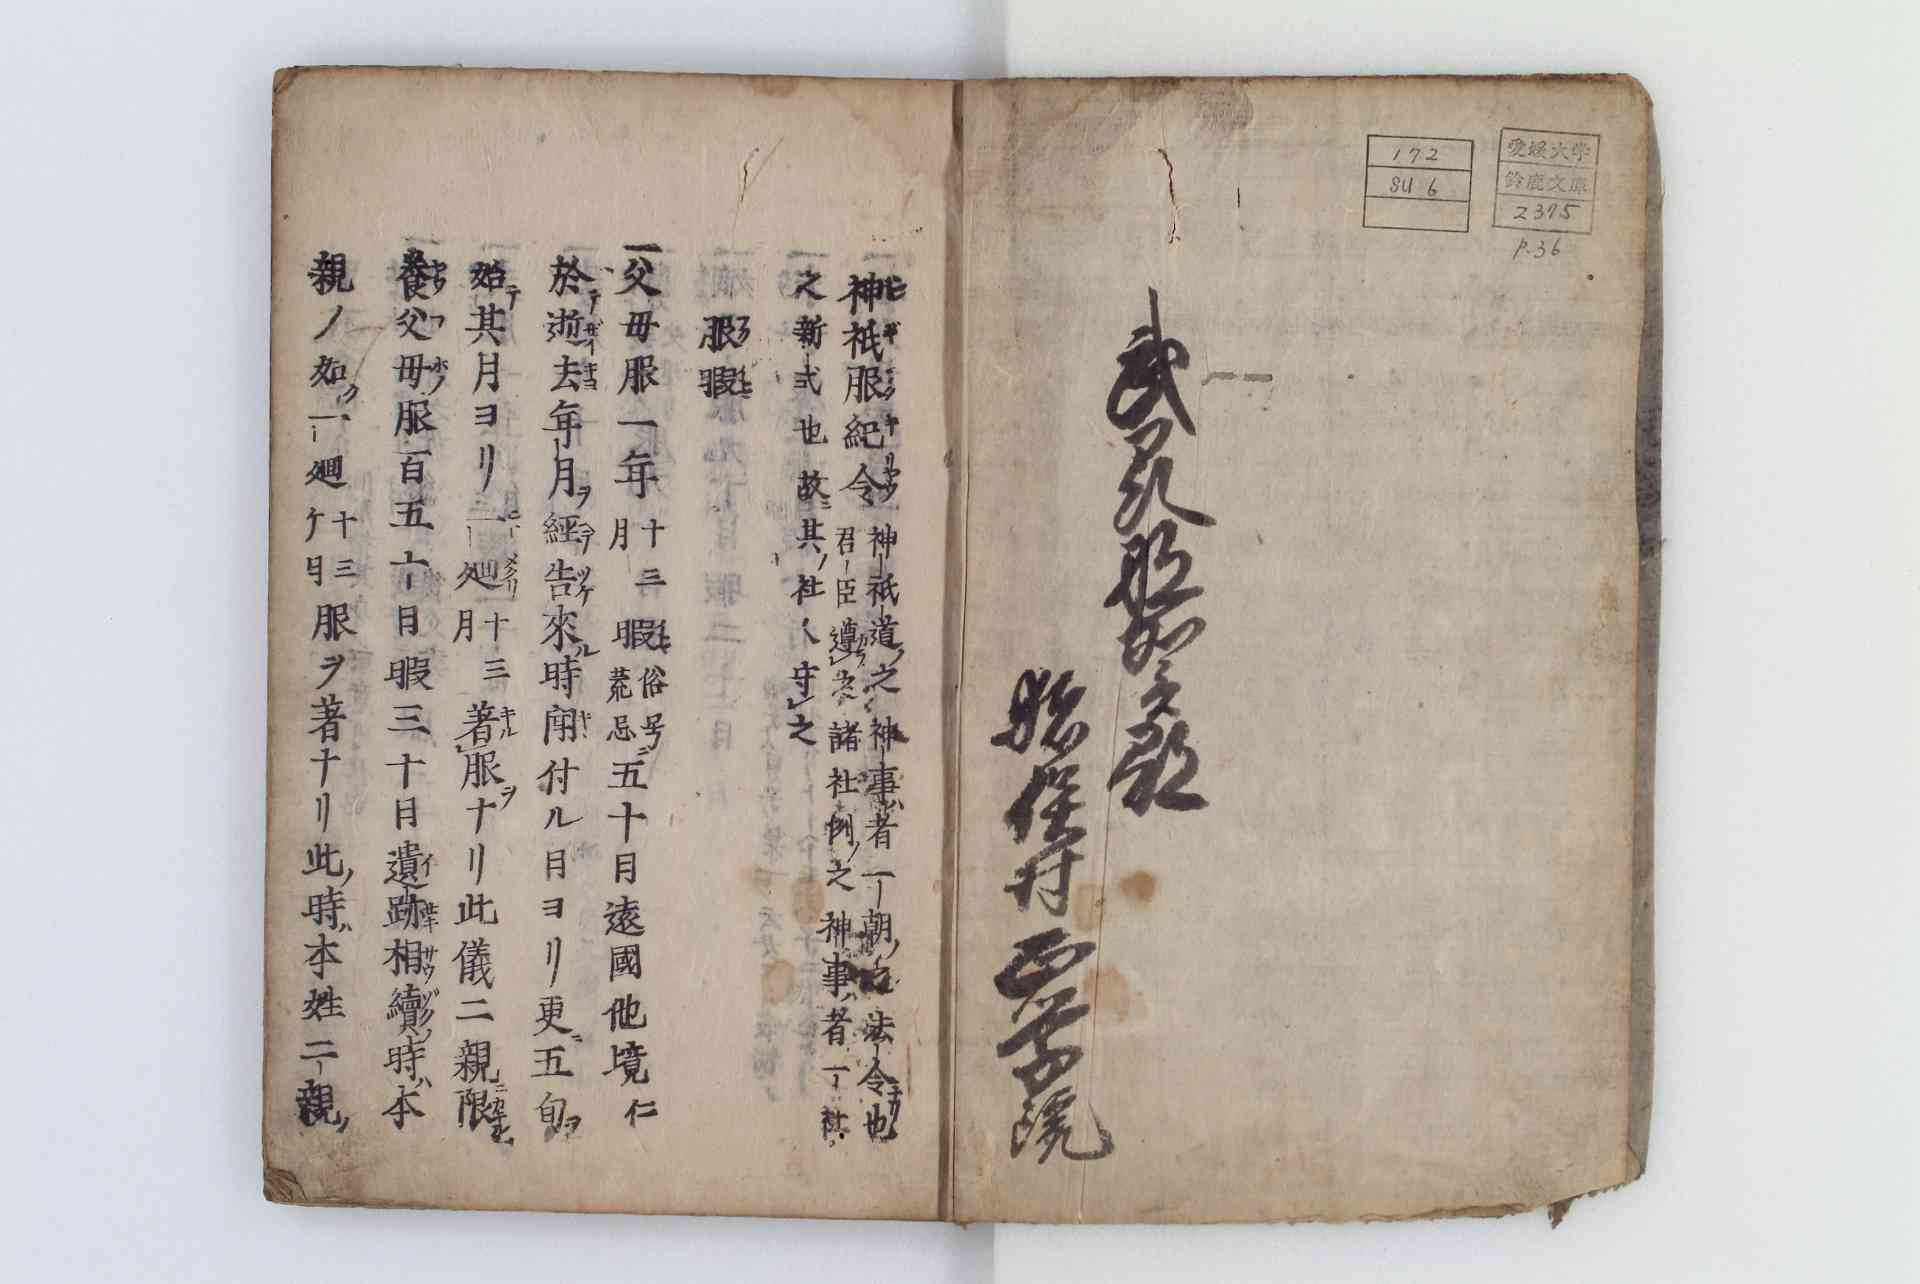 愛媛大学
鈴鹿文庫
2375
P.36
172
SU 6
武州那賀郡
村
院
神祇服紀令 神祇道之神事者一朝之法令也
君臣遵之諸社例之神事者一社
之新式也故其社人守之
服暇
一父母服一年 十三月 暇 俗号荒忌 五十日遠國他境仁
於逝去年月ヲ經告來ル時聞付ル日ヨリ更ニ五旬ヲ
始テ其月ヨリ一廻 十三月 著服ヲナリ此儀二親ニ限
養父母服百五十日暇三十日遺跡相續ノ時ハ本
親ノ如ク一廻 十三ケ月 服ヲ著ナリ此ノ時ハ本姓二親ノ